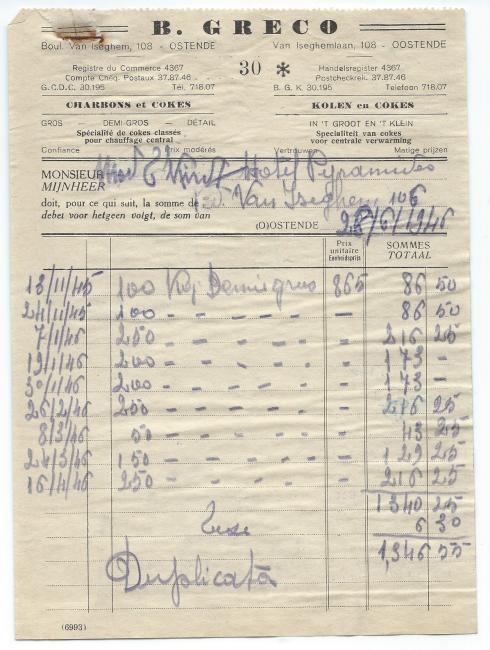 B. GRECO
Boul. Van Iseghem, 108 - OSTENDE
Van Iseghemlaan, 108 - OOSTENDE
Registre du Commerce 4367
Compte Chq. Postaux 37.87.46
G.C.D.C. 30.195 Tél. 718.07
30 *
Handelsregister 4367
Postcheckrek. 37.87.46
B. G. K. 30.195 Telefoon 718.07
CHARBONS et COKES
KOLEN en COKES
GROS - DEMI-GROS - DÉTAIL
IN 'T GROOT EN 'T KLEIN
Spécialité de cokes classés
pour chauffage central
Specialiteit van cokes
voor centrale verwarming
Confiance Prix modérés
Vertrouwen Matige prijzen
MONSIEUR Hotel Pyramides
MIJNHEER
doit, pour ce qui suit, la somme de Van Iseghem 106
debet voor hetgeen volgt, de som van
(O)OSTENDE 28/6/1946
Prix unitaire Eenheidsprijs SOMMES TOTAAL
13/11/45 100 Kg Demi gras 865 86 50
24/11/45 100 - - - - - - 86 50
7/1/46 250 - - - - - - 216 25
19/1/46 200 - - - - - - 173 -
30/1/46 200 - - - - - - 173 -
26/2/46 250 - - - - - - 216 25
8/3/46 50 - - - - - - 43 25
24/3/46 150 - - - - - - 129 25
16/4/46 250 - - - - - - 216 25
1340 25
Taxe 6 30
1,346 55
Duplicata
(6993)